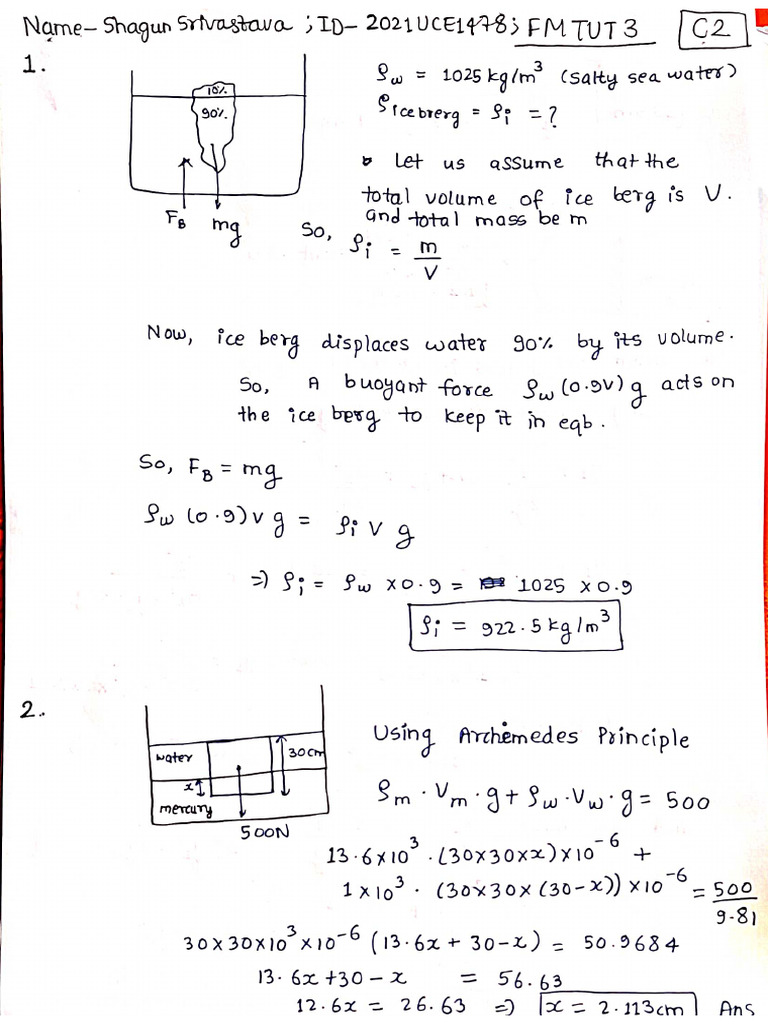 Name- Shagun Srivastava ; ID- 2021UCE1478; FM TUT 3 C2
1.
10%
90%.
FB mg
ρw = 1025 kg/m³ (salty sea water)
ρicebrerg = ρi = ?
Let us assume that the
total volume of ice berg is V.
and total mass be m
So, ρi = m/V
Now, ice berg displaces water 90% by its volume.
So, A buoyant force ρw (0.9V) g acts on
the ice berg to keep it in eqb.
So, FB = mg
ρw (0.9) v g = ρi v g
=) ρi = ρw x 0.9 = 1025 x 0.9
ρi = 922.5 kg/m³
2.
water
30cm
x
mercury
500N
Using Archemedes Principle
ρm . Vm . g + ρw . Vw . g = 500
13.6x10³ . (30x30xx)x10⁻⁶ +
1x10³ . (30x30x(30-x))x10⁻⁶ = 500/9.81
30x30x10³x10⁻⁶ (13.6x + 30-x) = 50.9684
13.6x+30-x = 56.63
12.6x = 26.63 =) x = 2.113cm Ans